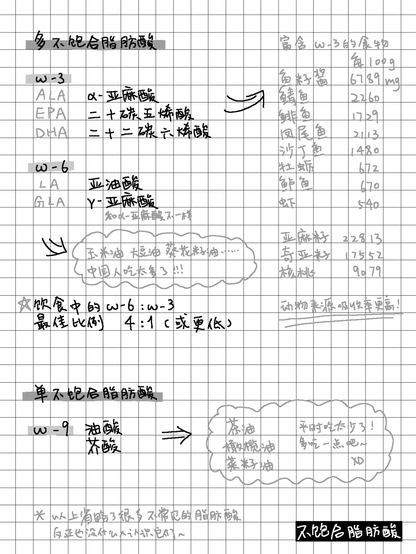 多不饱合脂肪酸
w-3
ALA α-亚麻酸
EPA 二十碳五烯酸
DHA 二十二碳六烯酸
w-6
LA 亚油酸
GLA γ-亚麻酸
和α-亚麻酸不一样
玉米油 大豆油 葵花籽油……
中国人吃太多了!!!
☆饮食中的w-6:w-3
最佳比例 4:1(或更低)
富含w-3的食物
每100g
鱼籽酱 6789mg
鲭鱼 2260
鲱鱼 1729
凤尾鱼 2113
沙丁鱼 1480
牡蛎 672
鲈鱼 670
虾 540
亚麻籽 22813
奇亚籽 17552
核桃 9079
动物来源吸收率更高!
单不饱合脂肪酸
w-9 油酸
芥酸
茶油
橄榄油
菜籽油
平时吃太少了!
多吃一点吧~
XD
* 以上省略了很多不常见的脂肪酸
反正也没什么人认识它们~
不饱合脂肪酸